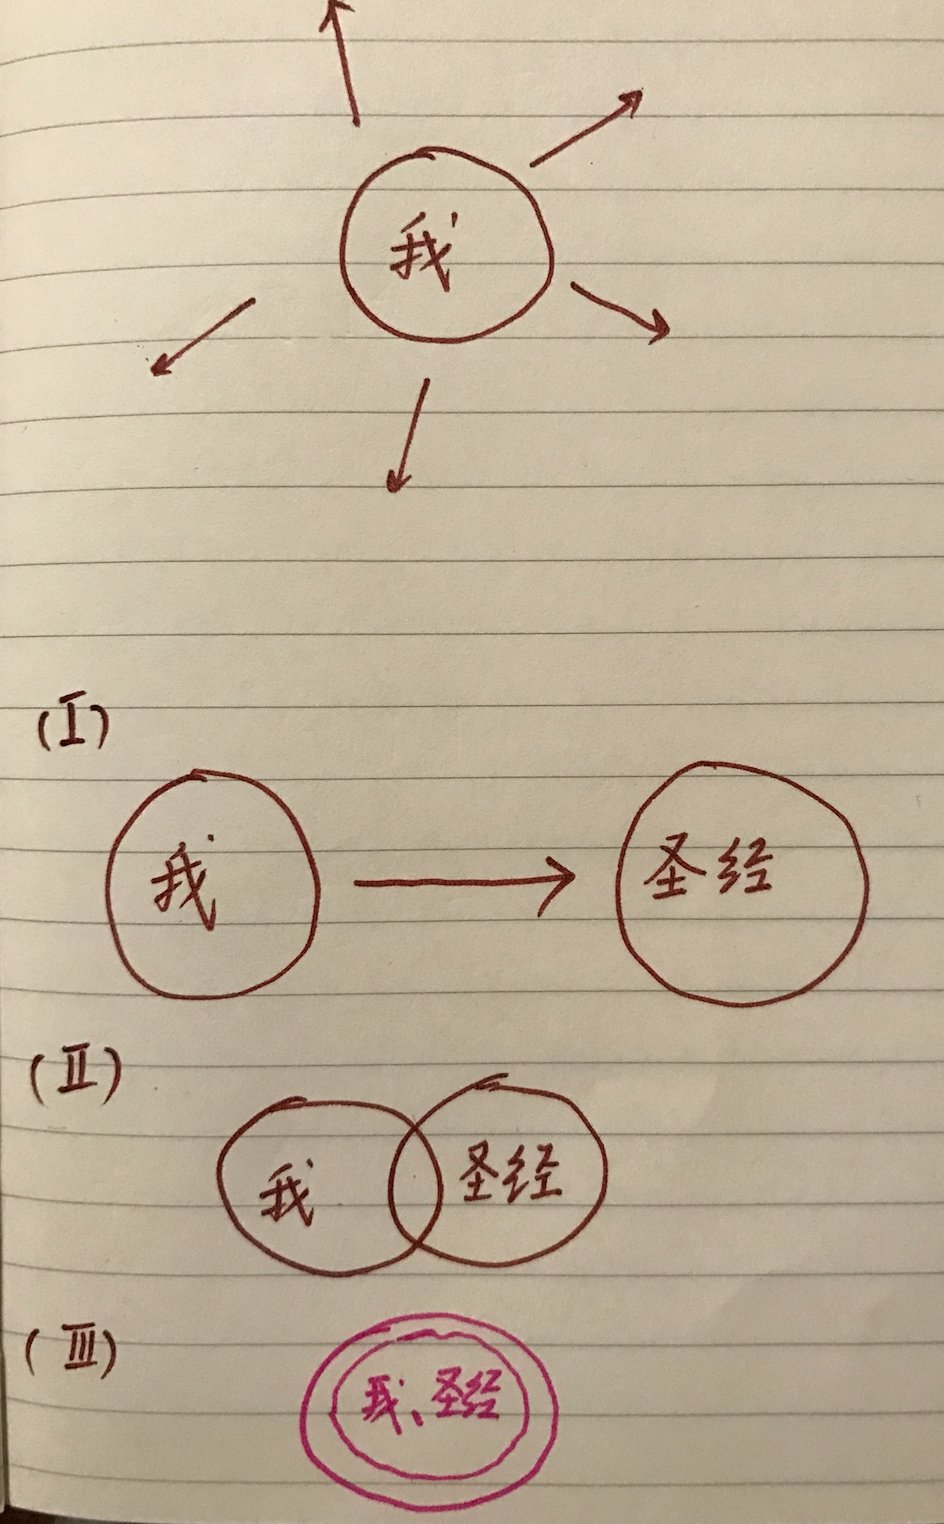 我
(Ⅰ)
我 圣经
(Ⅱ)
我 圣经
(Ⅲ)
我、圣经